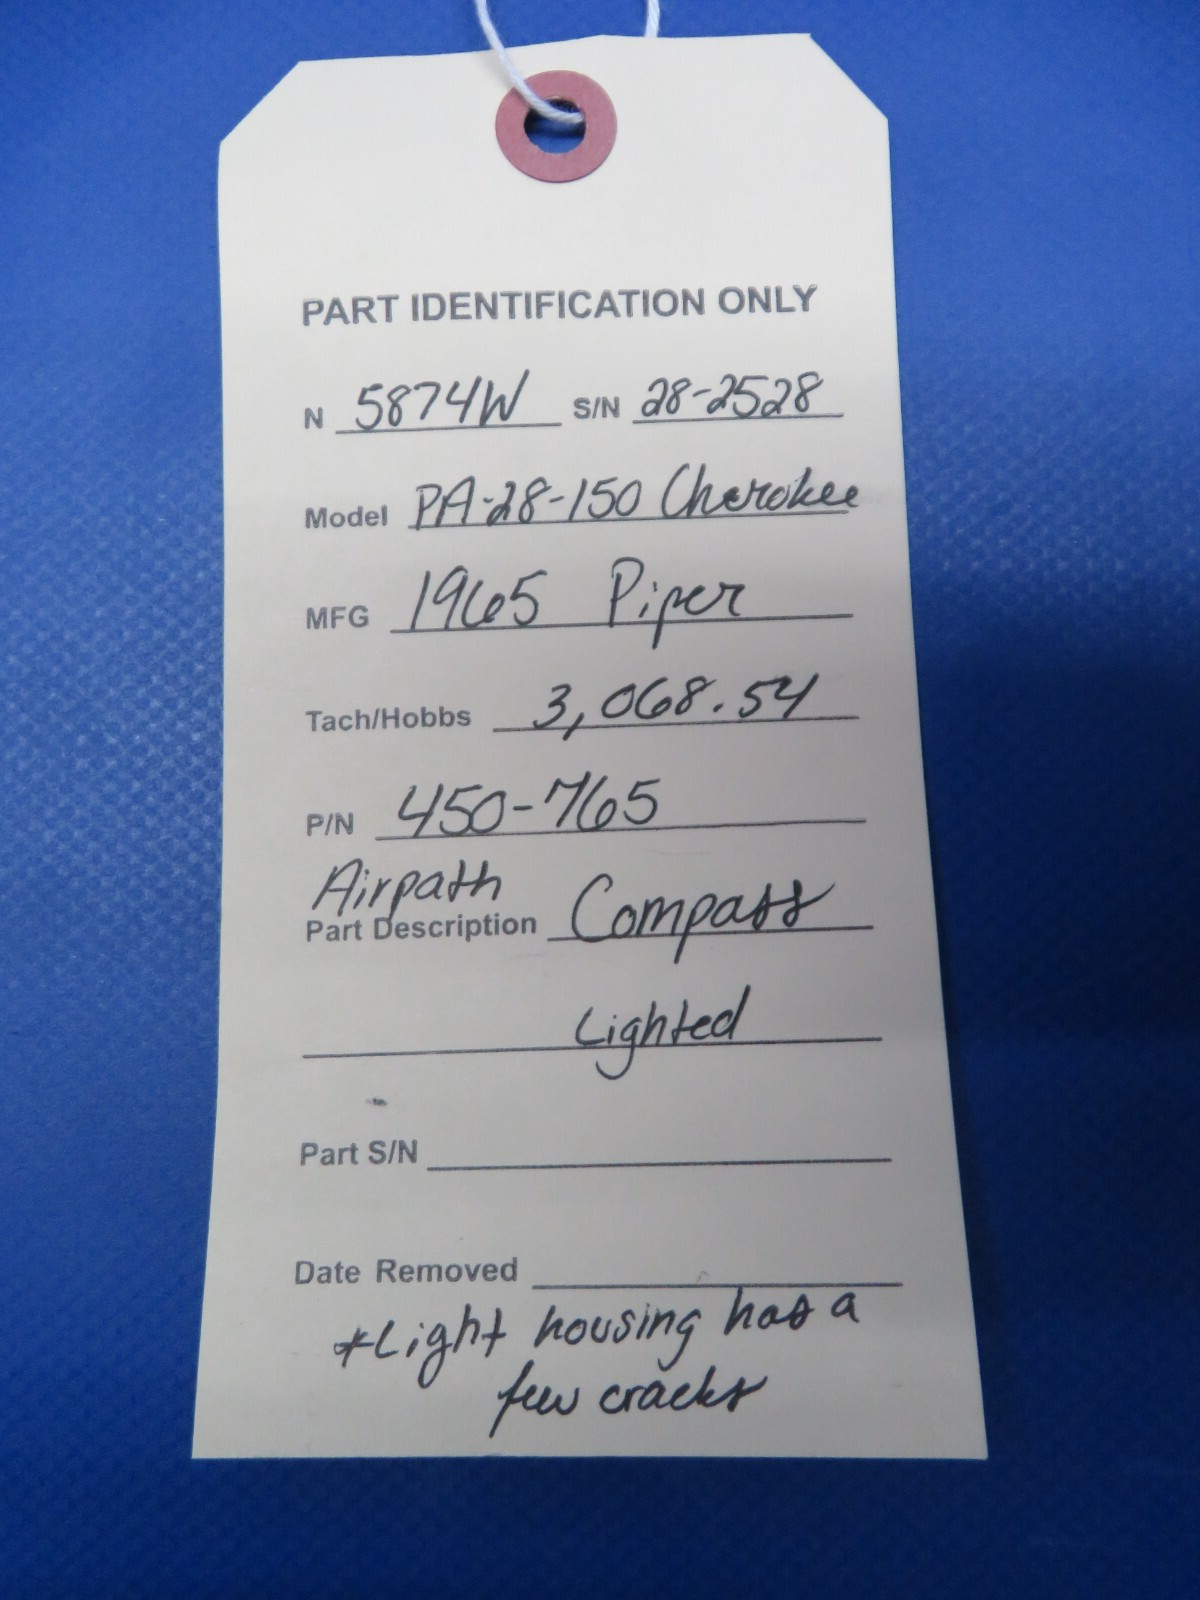 PART IDENTIFICATION ONLY
N 5874W S/N 28-2528
Model PA-28-150 Cherokee
MFG 1965 Piper
Tach/Hobbs 3,068.54
P/N 450-765
Airpath
Part Description Compass
Lighted
Part S/N
Date Removed
*Light housing has a
few cracks